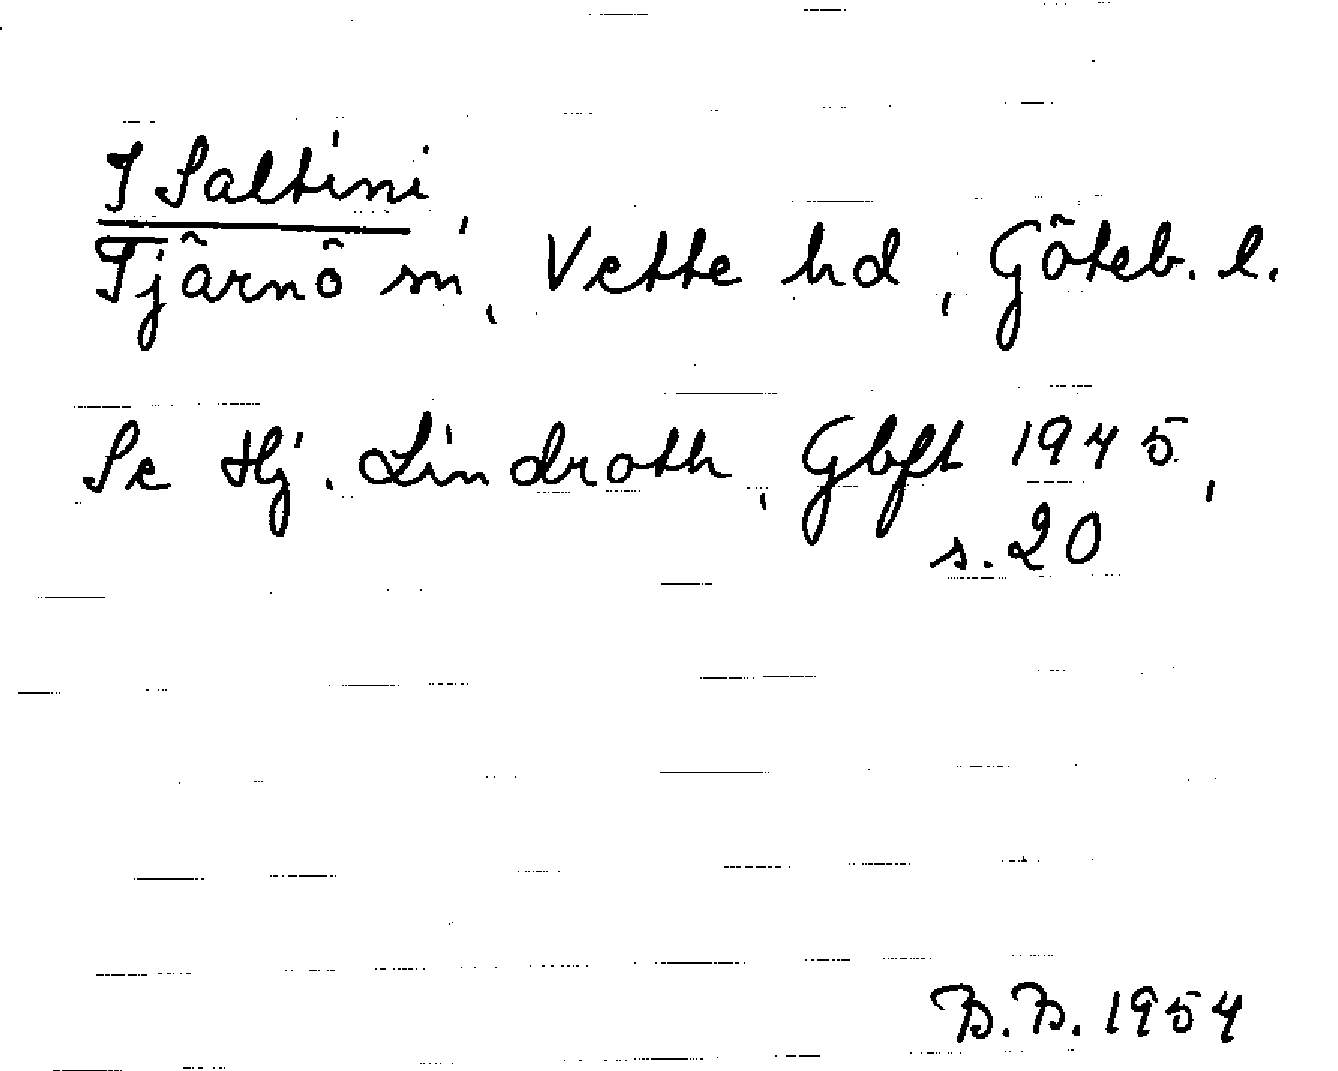 I Saltini
Tjärnö sn, Vette hd, Göteb. l.
Se Hj. Lindroth, Gbft 1945,
s. 20
B.B. 1954